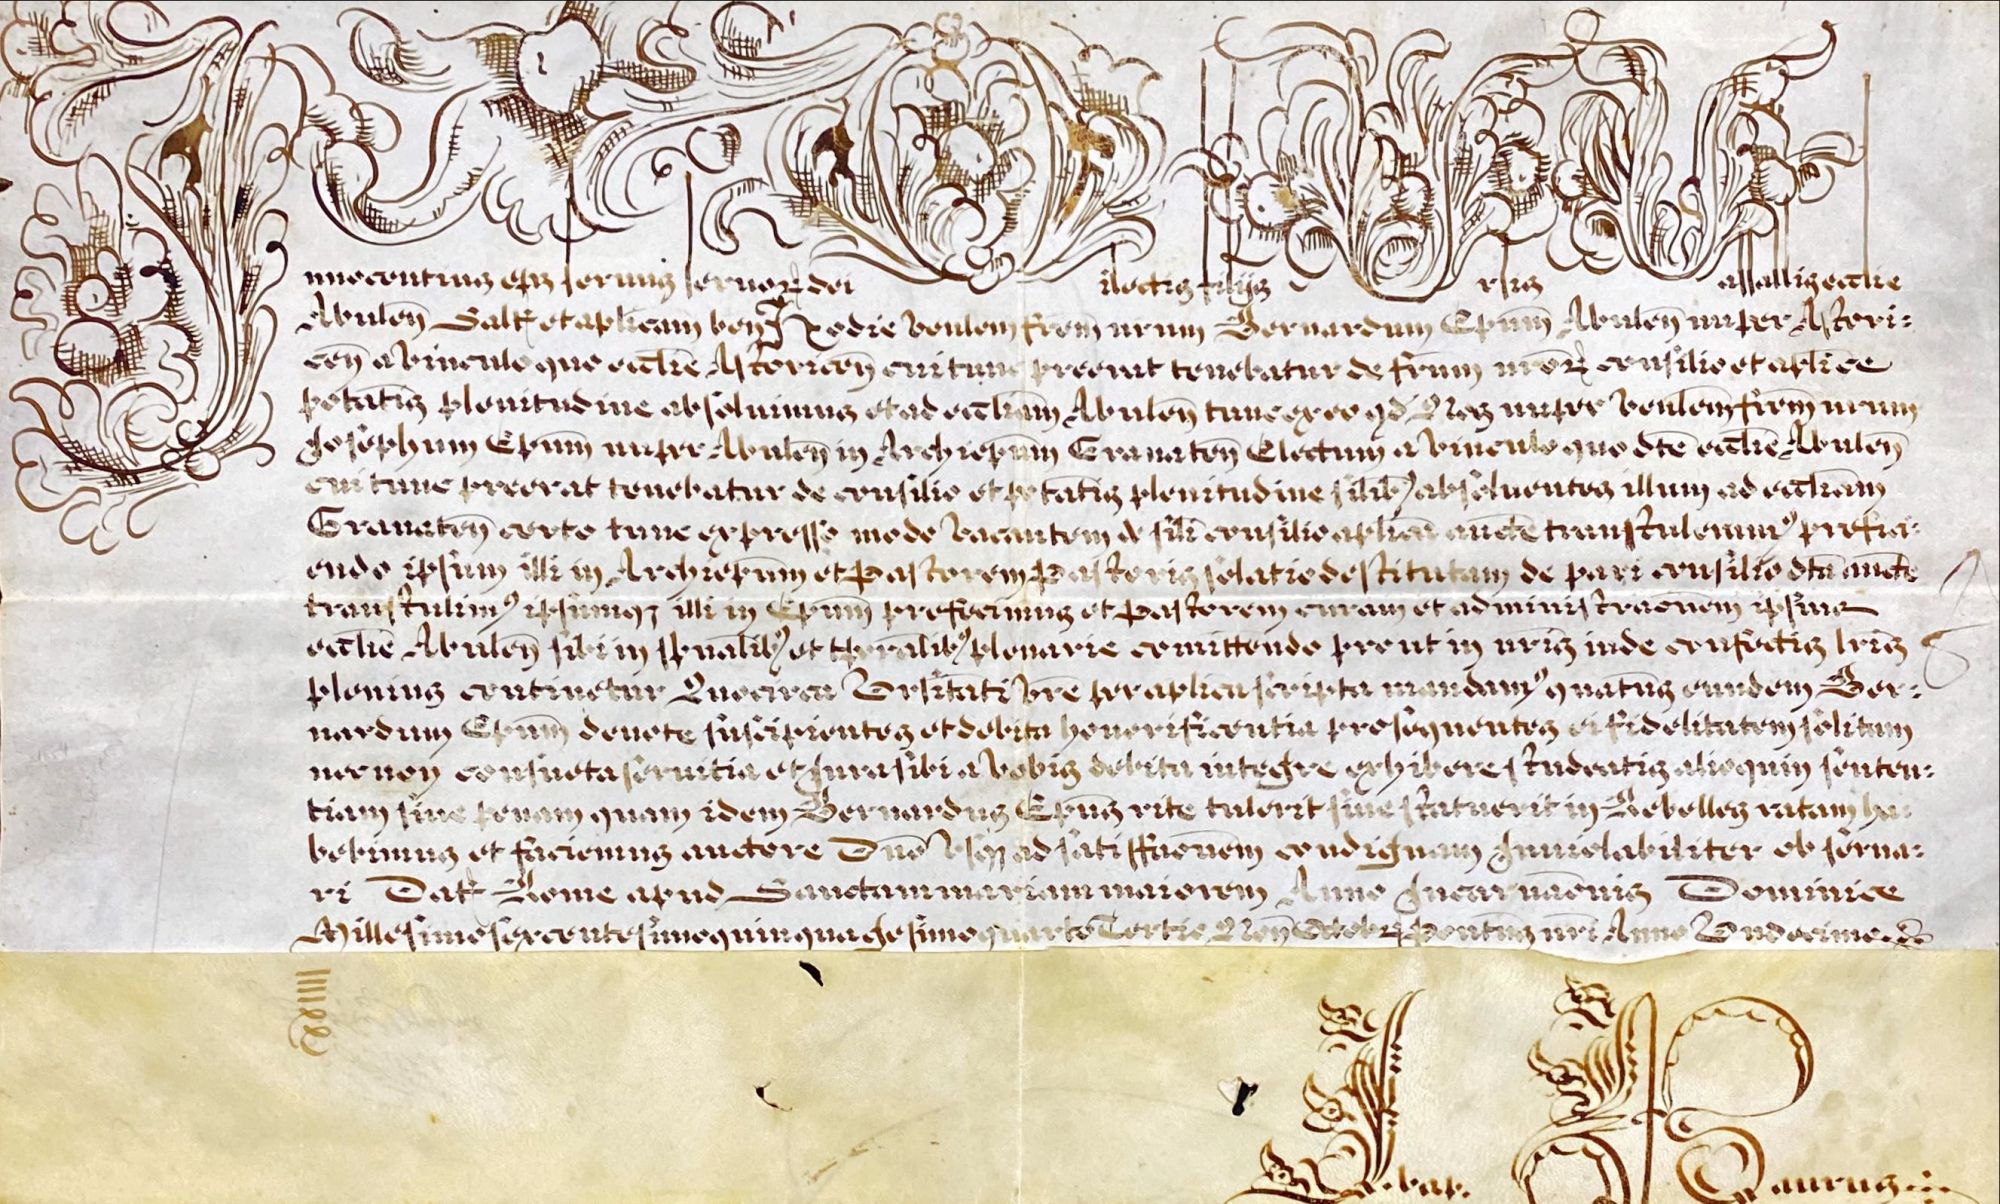 Innocentius eps servus servoꝝ dei Dilectis filijs Universis Vassallis ecclie
Abulen̄ Salt̄ et aplicam ben̄ Hodie venlem frem nrum Bernardum Epum Abulen̄ nuper Astori-
cen̄ a vinculo quo ecclie Astoricen̄ cui tunc preerat tenebatur de frum nroꝝ consilio et aplice
potatis plenitudine absolvimus et ad eccliam Abulen̄ tunc ex eo qd Nos nuper venlem frem nrum
Josephum Epum nuper Abulen̄ in Archiepum Granaten̄ Electum a vinculo quo dte ecclie Abulen̄
cui tunc preerat tenebatur de consilio et potatis plenitudine silibꝰ absolventes illum ad eccliam
Granaten̄ certo tunc expresso modo vacantem de sili consilio aplica aucte transtuleramꝰ prefici-
endo ipsum illi in Archiepum et Pastorem Pastoris solatio destitutam de pari consilio dta aucte
transtulimꝰ ipsumqꝫ illi in Epum prefecimus et Pastorem curam et administraōnem ipsius
ecclie Abulen̄ sibi in spualibꝰ et tporalibꝰ plenarie comittendo prout in nris inde confectis lris
plenius continetur Quocirca Vrsitati vre per aplica scripta mandamꝰ quatūs eundem Ber-
nardum Epum devote suscipientes et debita honorificentia prosequentes ei fidelitatem solitam
necnon consueta servitia et Jura sibi a vobis debita integre exhibere studeatis alioquin senten-
tiam sive penam quam idem Bernardus Epus rite tulerit sive statuerit in Rebelles ratam ha-
bebimus et faciemus auctore Dno vsqꝫ ad satisffaōnem condignam Inviolabiliter observa-
ri Dat̄ Rome apud Sanctam mariam maiorem Anno Incarnaōnis Dominice
Millesimo sexcentesimo quinquagesimo quarto Tertio Non̄ Octobꝝ Pontūs nri Anno Undecimo